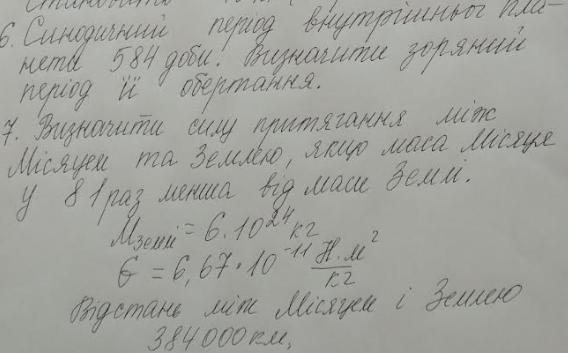 6. Синодичний період внутрішньої пла-
нети 584 доби. Визначити зоряний
період її обертання.
7. Визначити силу притягання між
Місяцем та Землею, якщо маса Місяця
у 81 раз менша від маси Землі.
Mземлі = 6·10²⁴ кг
G = 6,67·10⁻¹¹ Н·м²/кг
Відстань між Місяцем і Землею
384000 км,